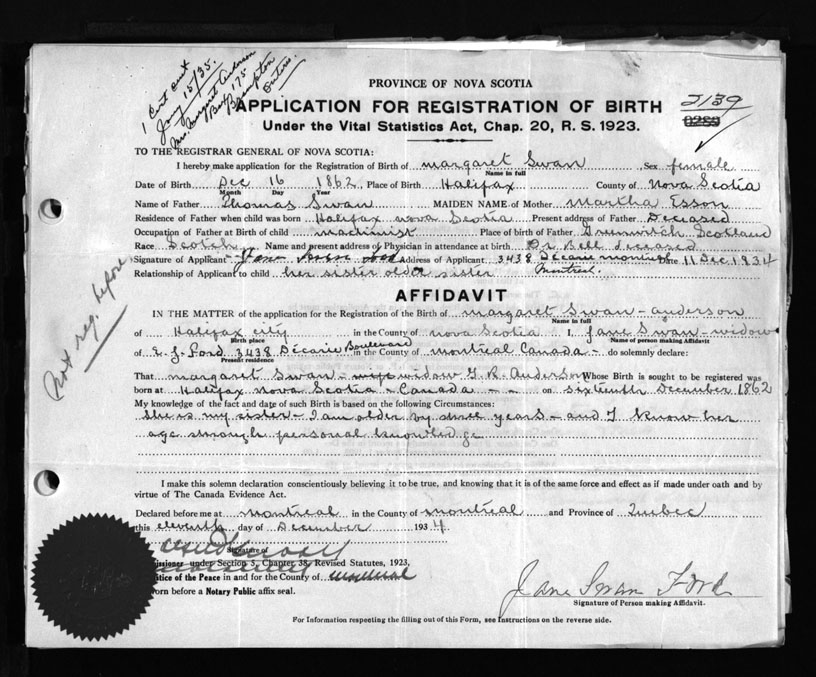 1 Cert sent
Jany 15/35.
Mrs. Margaret Anderson
Box 175
Brampton
Ontario.
PROVINCE OF NOVA SCOTIA
APPLICATION FOR REGISTRATION OF BIRTH
2139
0283
Under the Vital Statistics Act, Chap. 20, R. S. 1923.
TO THE REGISTRAR GENERAL OF NOVA SCOTIA:
I hereby make application for the Registration of Birth of margaret Swan Sex female
Name in full
Date of Birth Dec 16 1862 Place of Birth Halifax County of Nova Scotia
Month Day Year
Name of Father Thomas Swan MAIDEN NAME of Mother Martha Esson
Residence of Father when child was born Halifax nova Scotia Present address of Father Deceased
Occupation of Father at Birth of child machinist Place of birth of Father Scotland
Race Scotch Name and present address of Physician in attendance at birth Dr Bell deceased
Signature of Applicant Address of Applicant 3438 Décarie Date 11 Dec 1934
Montreal.
Relationship of Applicant to child her sister older sister
Not reg. before
AFFIDAVIT
IN THE MATTER of the application for the Registration of the Birth of margaret Swan - anderson
Name in full
of Halifax city in the County of nova Scotia I, Jane Swan - widow
Birth place Name of person making Affidavit
of E. J. Ford 3438 Décarie Boulevard in the County of montreal Canada - do solemnly declare:
Present residence
That margaret Swan - widow G. R. Anderson Whose Birth is sought to be registered was
born at Halifax nova Scotia - Canada - - on sixteenth December 1862
My knowledge of the fact and date of such Birth is based on the following Circumstances:
She is my sister - I am older by three years - and I know her
age through personal knowledge
I make this solemn declaration conscientiously believing it to be true, and knowing that it is of the same force and effect as if made under oath and by
virtue of The Canada Evidence Act.
Declared before me at montreal in the County of montreal and Province of Quebec
this eleventh day of December 1934
Signature of
Commissioner under Section 3, Chapter 38, Revised Statutes, 1923,
Justice of the Peace in and for the County of montreal
Sworn before a Notary Public affix seal.
Jane Swan Ford
Signature of Person making Affidavit.
For Information respecting the filling out of this Form, see Instructions on the reverse side.